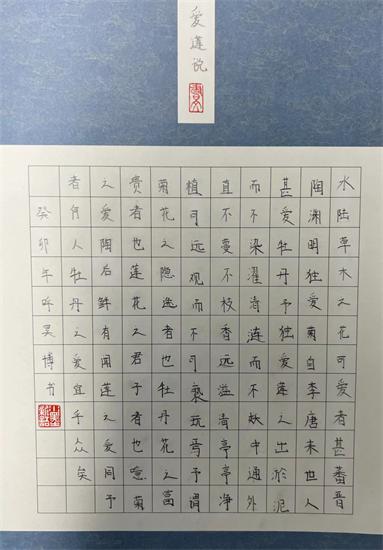 爱莲说
水陆草木之花可爱者甚蕃晋
陶渊明独爱菊自李唐来世人
甚爱牡丹予独爱莲之出於泥
而不染濯清涟而不妖中通外
直不蔓不枝香远溢清亭亭净
植可远观而不可亵玩焉予谓
菊花之隐逸者也牡丹花之富
贵者也莲花之君子者也噫菊
之爱陶后鲜有闻莲之爱同予
者何人牡丹之爱宜乎众矣
癸卯年呼博书